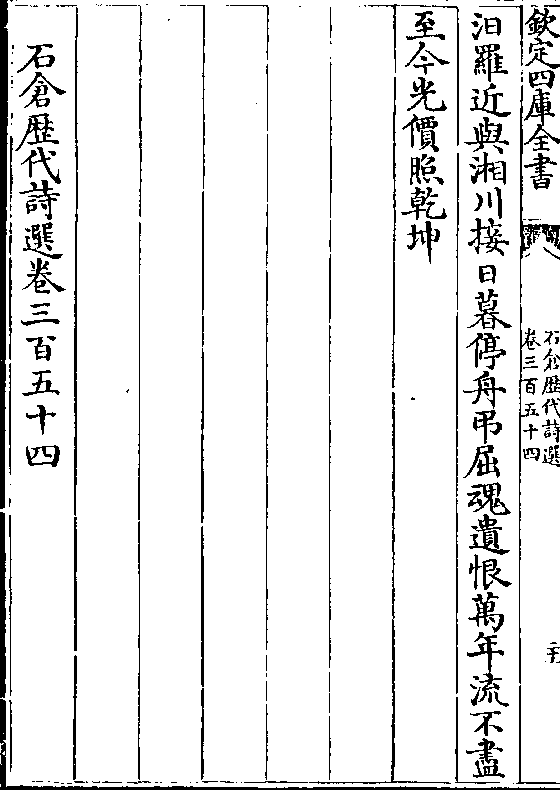 欽定四庫全書
石倉歴代詩選
卷三百五十四
汨羅近與湘川接日暮停舟弔屈魂遺恨萬年流不盡
至今光價照乾坤
石倉歴代詩選卷三百五十四